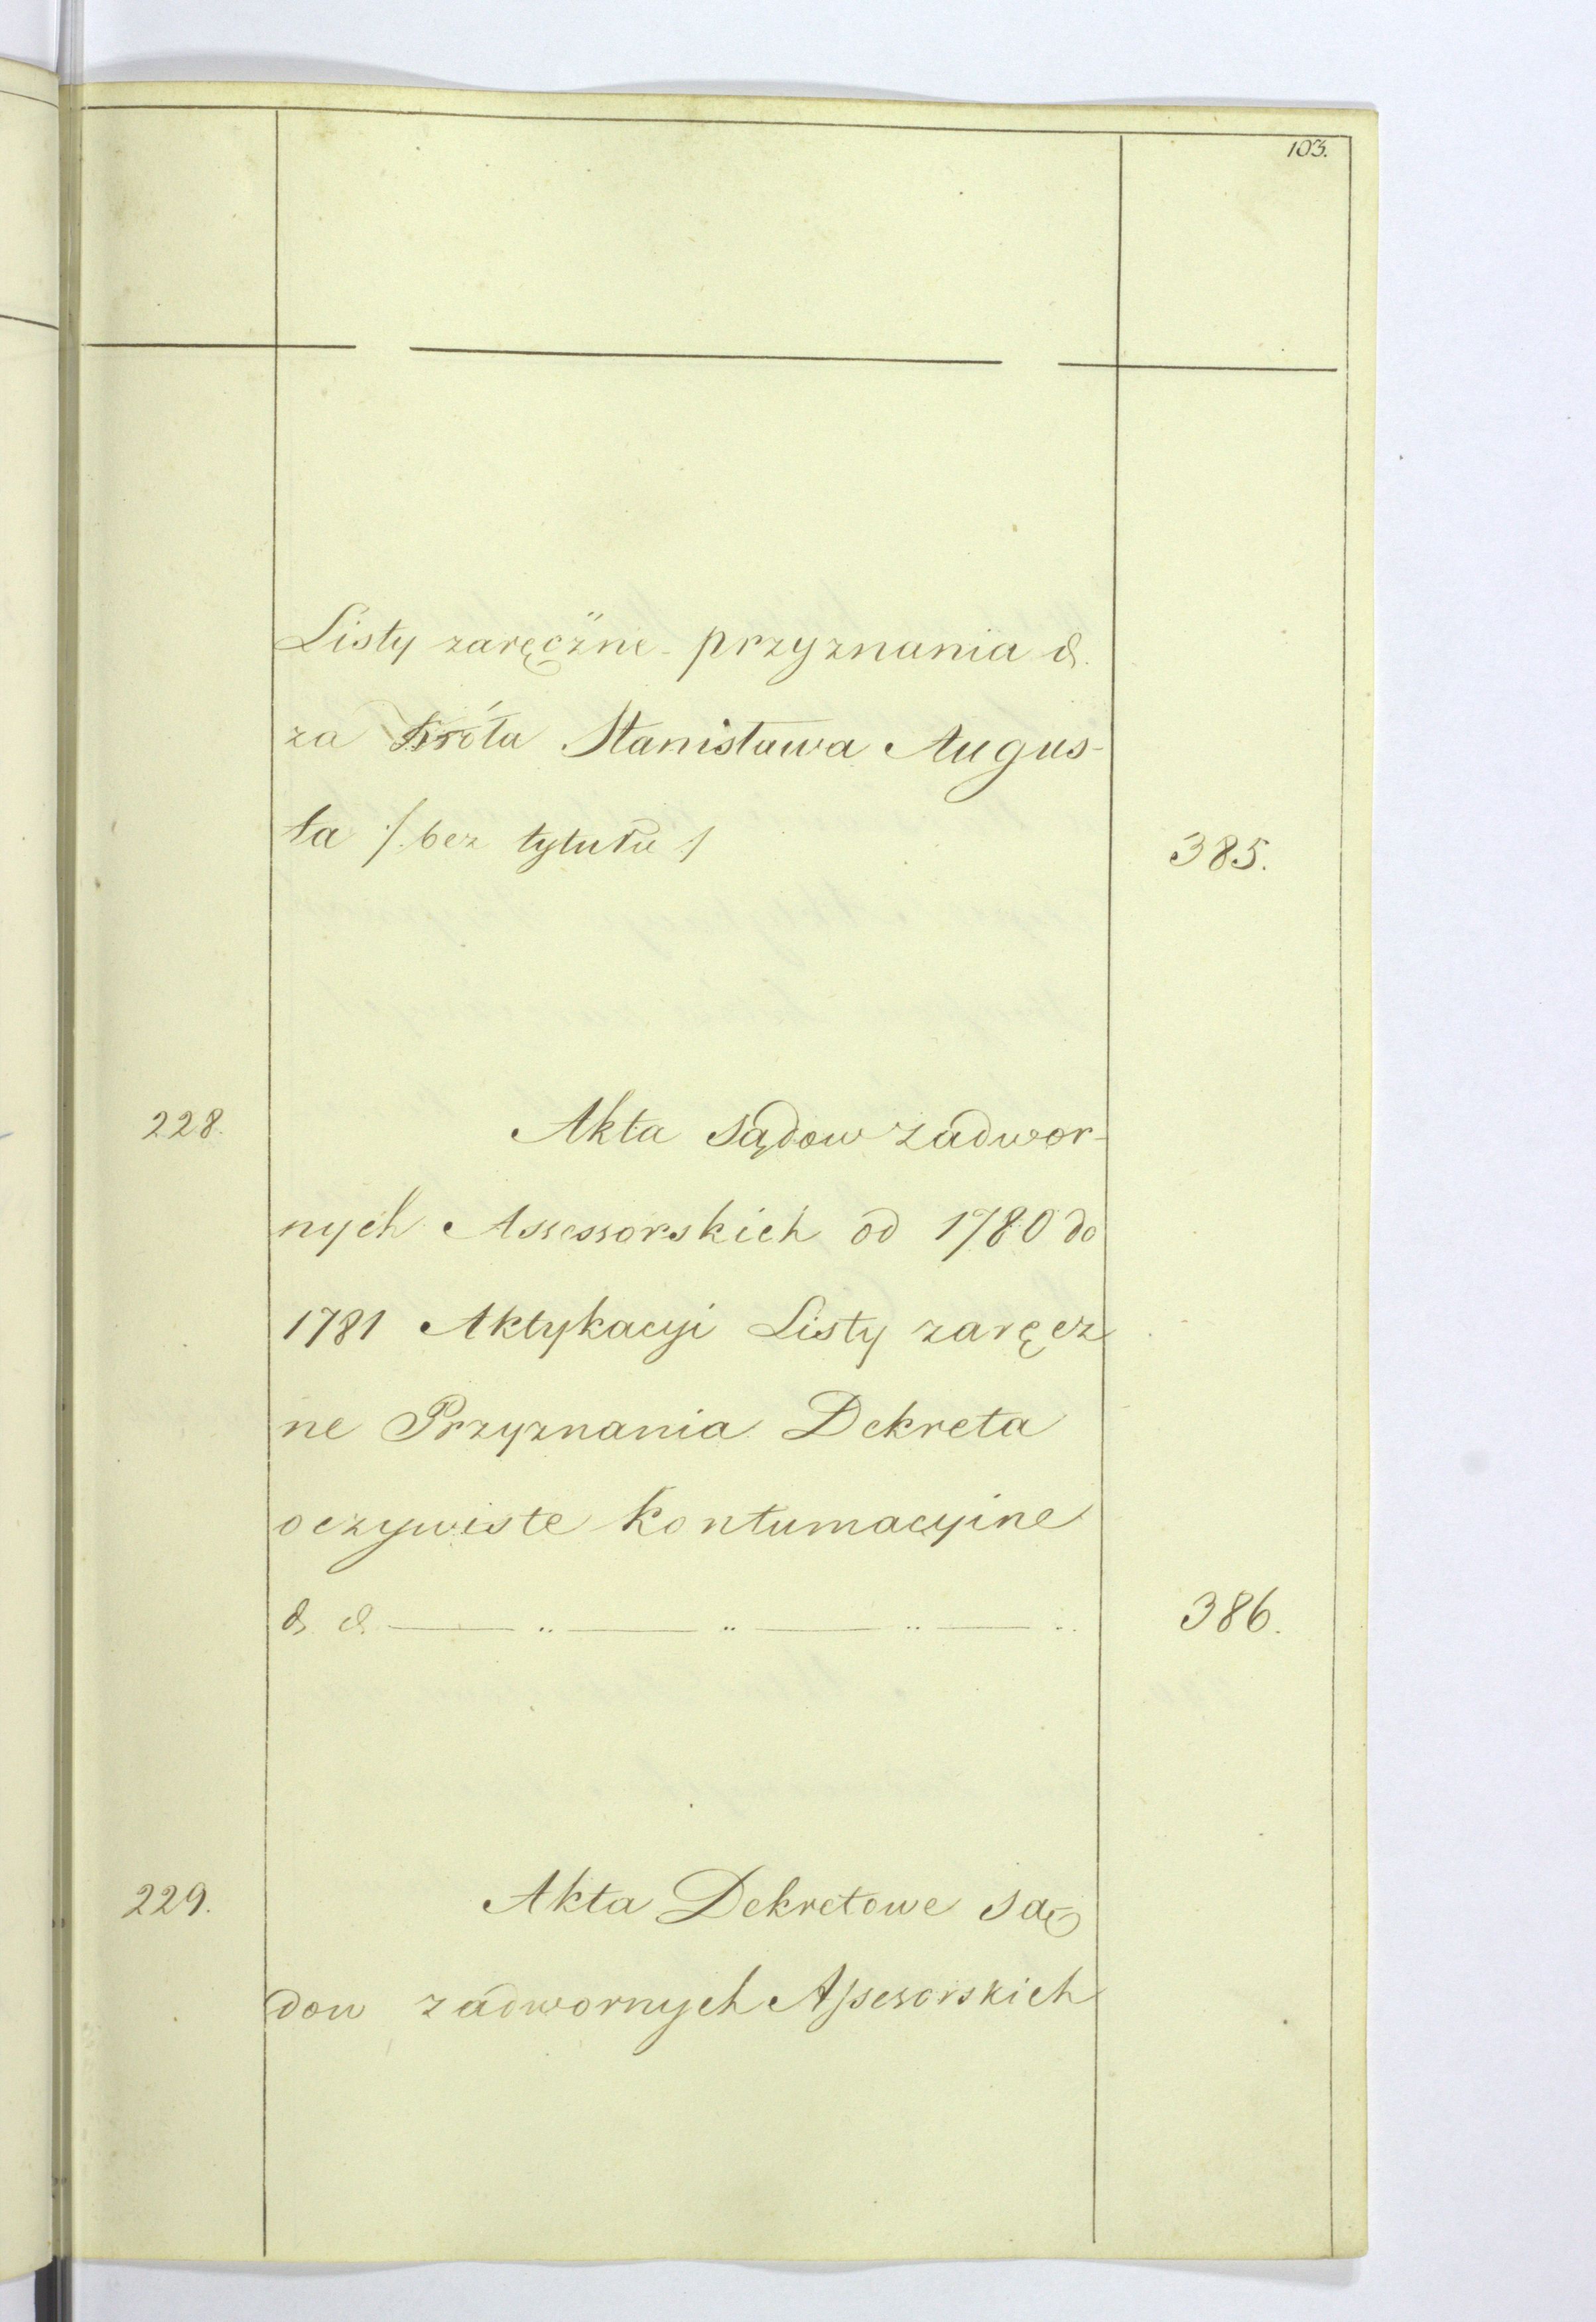 103.
Listy zaręczne - przyznania &.
za Króla Stanisława Augus-
ta /. bez tytułu /
385.
228.
Akta sądow zadwor-
nych Assessorskich od 1780 do
1781 Aktykacyi Listy zaręcz
ne Przyznania Dekreta
oczywiste kontumacyine
&. &. — „ — „ — „ — „
386.
229.
Akta Dekretowe są
dow zadwornych Assesorskich